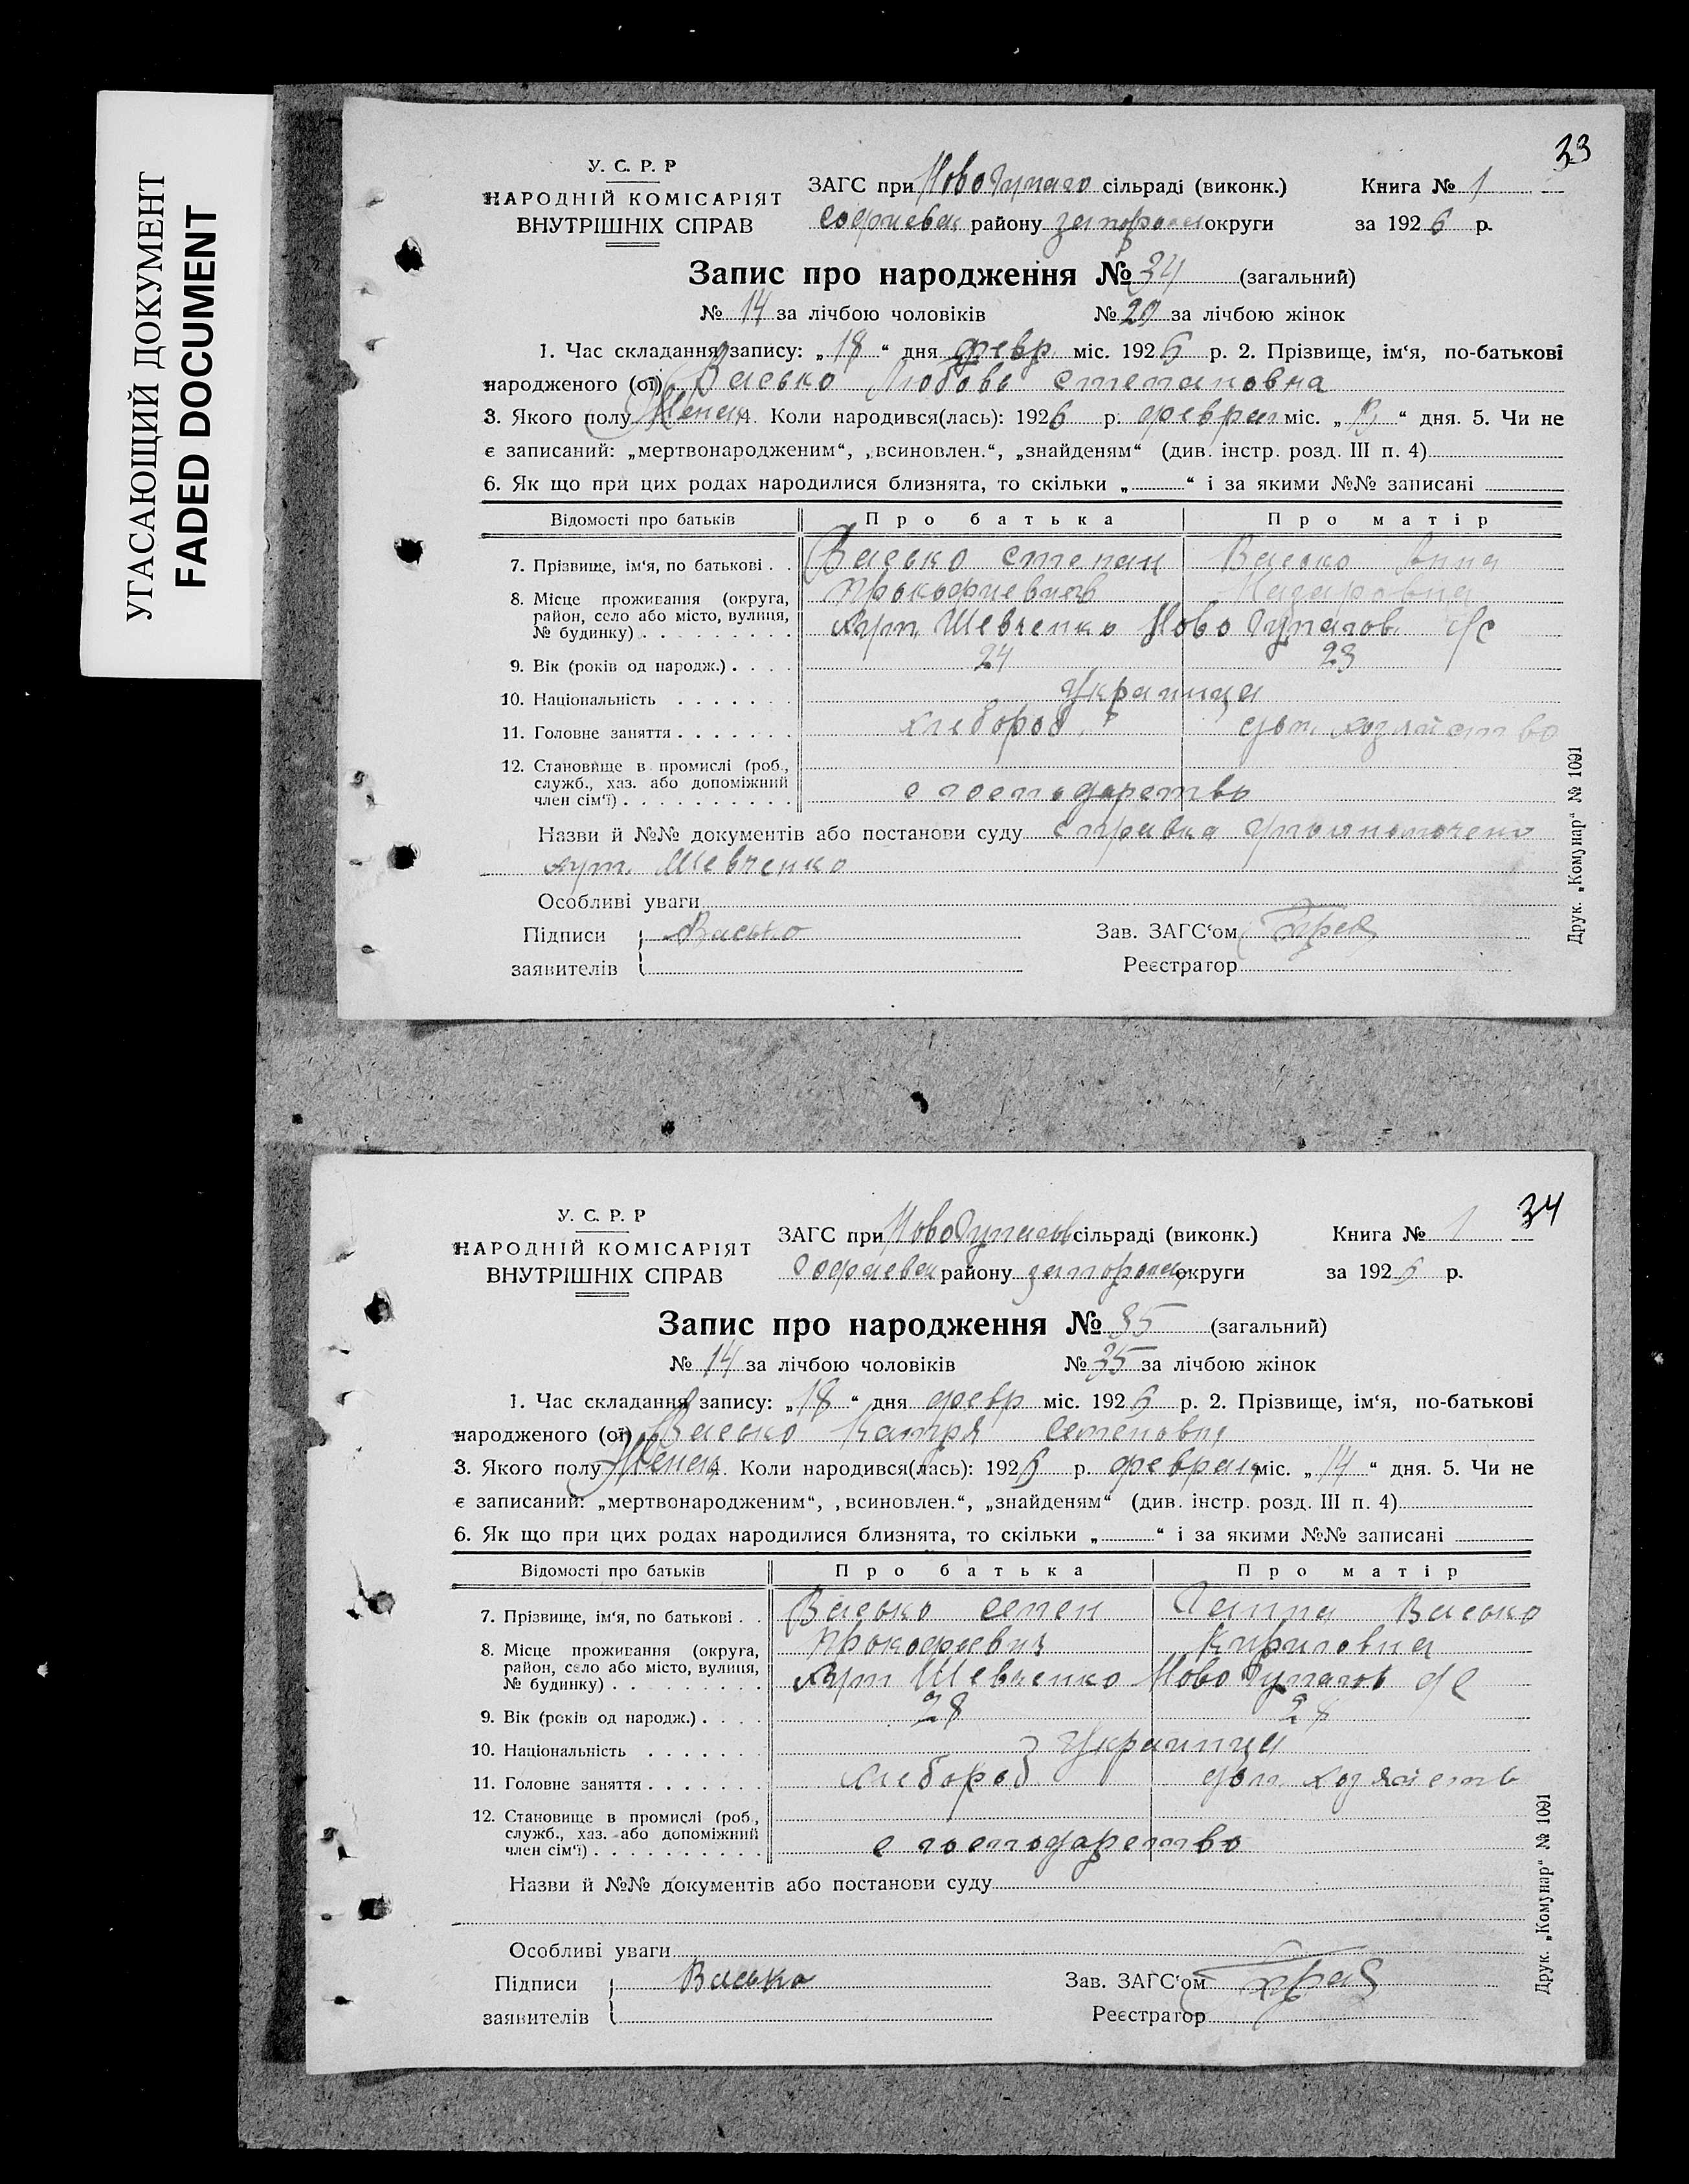 УГАСАЮЩИЙ ДОКУМЕНТ
FADED DOCUMENT
33
У. С. Р. Р
НАРОДНІЙ КОМІСАРІЯТ
ВНУТРІШНІХ СПРАВ
ЗАГС при сільраді (виконк.) Книга № 1
району округи за 1926 р.
Запис про народження № 34 (загальний)
№ 14 за лічбою чоловіків № 20 за лічбою жінок
1. Час складання запису: „18“ дня февр. міс. 1926 р. 2. Прізвище, ім‘я, по-батькові
народженого (ої) Васько Любовь Степановна
3. Якого полу Женск 4. Коли народився(лась): 1926 р. феврал міс. „ “ дня. 5. Чи не
є записаний: „мертвонародженим“, „всиновлен.“, „знайденям“ (див. інстр. розд. III п. 4)
6. Як що при цих родах народилися близнята, то скільки „ “ і за якими №№ записані
Відомості про батьків Про батька Про матір
7. Прізвище, ім‘я, по батькові . . Васько Степан Васько Анна
Прокофиевич Назаровна
8. Місце проживання (округа,
район, село або місто, вулиця,
№ будинку) . . . . . . . . . Хут. Шевченко Ново с/с
9. Вік (років од народж.) . . . . 24 23
10. Національність . . . . . . . Украинца
11. Головне заняття . . . . . . . хлебороб дом. хозяйство
12. Становище в промислі (роб.,
служб., хаз. або допоміжний
член сім‘ї) . . . . . . . . . . с господарство
Назви й №№ документів або постанови суду справка
хут. Шевченко
Особливі уваги
Підписи Васько Зав. ЗАГС‘ом
заявителів Реєстратор
Друк. „Комунар“ № 1091
34
У. С. Р. Р
НАРОДНІЙ КОМІСАРІЯТ
ВНУТРІШНІХ СПРАВ
ЗАГС при сільраді (виконк.) Книга № 1
району округи за 1926 р.
Запис про народження № 35 (загальний)
№ 14 за лічбою чоловіків № 35 за лічбою жінок
1. Час складання запису: „18“ дня февр міс. 1926 р. 2. Прізвище, ім‘я, по-батькові
народженого (ої) Васько Катря Семеновна
3. Якого полу Женск 4. Коли народився(лась): 1926 р. феврал міс. „14“ дня. 5. Чи не
є записаний: „мертвонародженим“, „всиновлен.“, „знайденям“ (див. інстр. розд. III п. 4)
6. Як що при цих родах народилися близнята, то скільки „ “ і за якими №№ записані
Відомості про батьків Про батька Про матір
7. Прізвище, ім‘я, по батькові . . Васько Семен Ганна Васько
Прокофиевич Кириловна
8. Місце проживання (округа,
район, село або місто, вулиця,
№ будинку) . . . . . . . . . Хут Шевченко Ново с/с
9. Вік (років од народж.) . . . . 28 28
10. Національність . . . . . . . Украинца
11. Головне заняття . . . . . . . хлебороб дом. хозяйств
12. Становище в промислі (роб.,
служб., хаз. або допоміжний
член сім‘ї) . . . . . . . . . . с господарство
Назви й №№ документів або постанови суду
Особливі уваги
Підписи Васько Зав. ЗАГС‘ом
заявителів Реєстратор
Друк. „Комунар“ № 1091